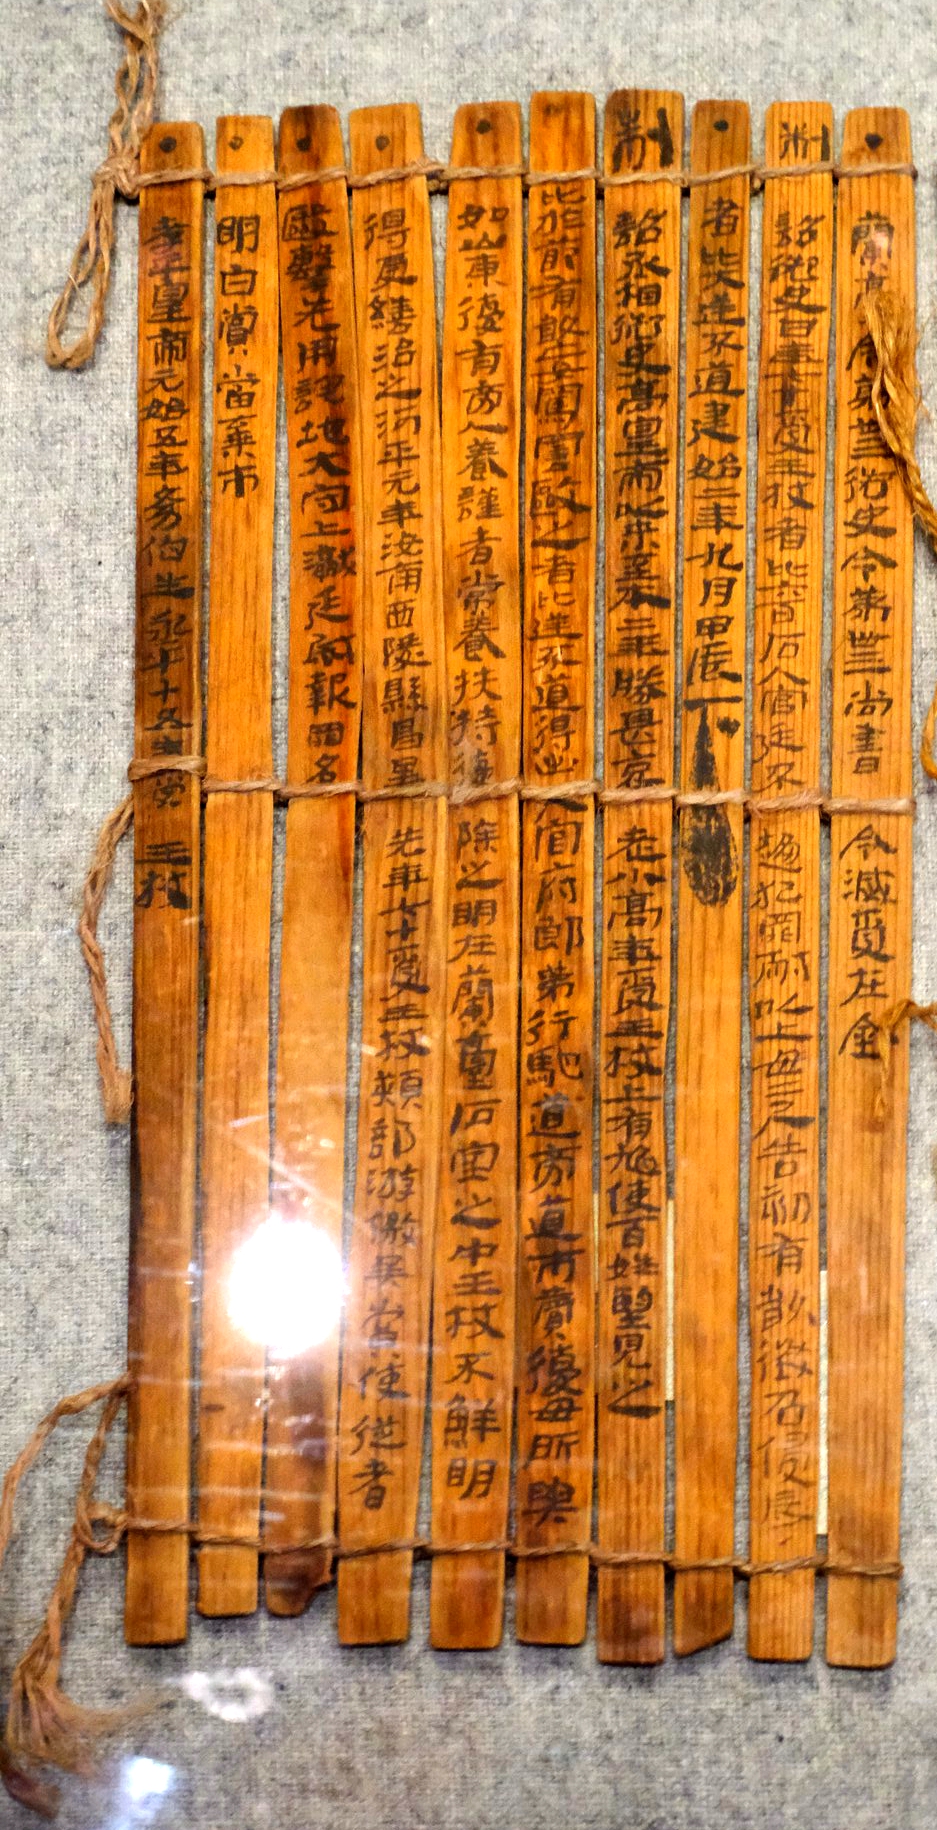 蘭臺令第卅三御史令第卌三尚書令滅受在金
制詔御史曰年七十受王杖者比六百石入官廷不趨犯罪耐以上毋二尺告劾有敢徵召侵辱
者比大逆不道建始二年九月甲辰下
制詔丞相御史高皇帝以來至本二年勝甚哀老小高年受王杖上有鳩使百姓望見之
比於節有敢妄罵詈毆之者比逆不道得出入官府郎第行馳道旁道市賣復毋所與
如山東復有旁人養謹者常養扶持復除之明在蘭臺石室之中王杖不鮮明
得更繕治之河平元年汝南西陵縣昌里先年七十受王杖熲部游徼吳賞使從者
毆擊先用詫地大守上讞廷尉報罪名
明白賞當棄市
孝平皇帝元始五年幼伯生永平十五年受王杖